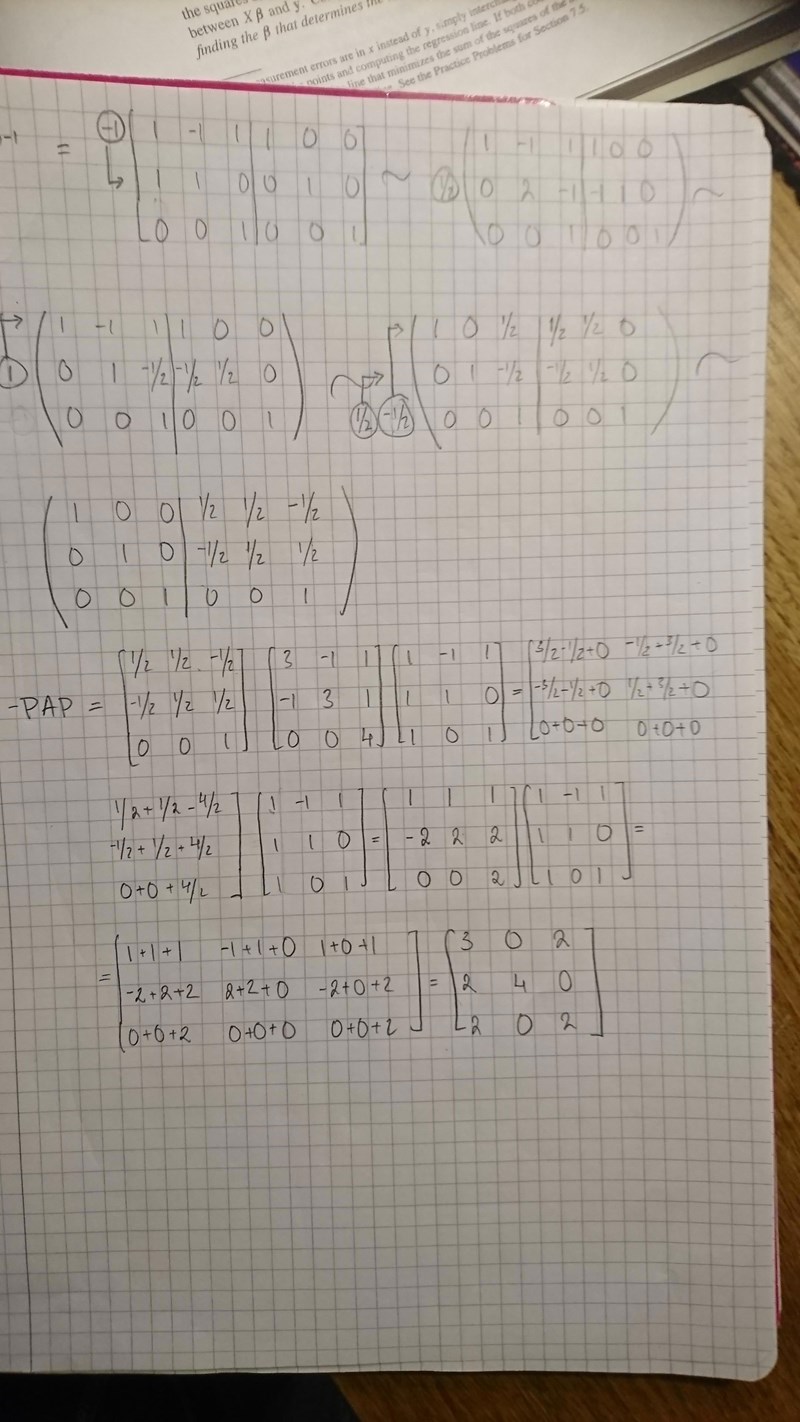 the squares
between X β and y.
finding the β that determines the
surement errors are in x instead of y, simply interch
points and computing the regression line. If both co
line that minimizes the sum of the squares of the
See the Practice Problems for Section 7.5.
-1 = (-1) [1 -1 1 | 1 0 0 ~ (1/2) (1 -1 1 | 1 0 0 ~
1 1 0 | 0 1 0 0 2 -1 | -1 1 0
0 0 1 | 0 0 1] 0 0 1 | 0 0 1)
(1 -1 1 | 1 0 0 (1 0 1/2 | 1/2 1/2 0
(1) 0 1 -1/2 | -1/2 1/2 0 ~ 0 1 -1/2 | -1/2 1/2 0 ~
0 0 1 | 0 0 1) (1/2) (-1/2) 0 0 1 | 0 0 1)
(1 0 0 | 1/2 1/2 -1/2
0 1 0 | -1/2 1/2 1/2
0 0 1 | 0 0 1)
[1/2 1/2 -1/2] [3 -1 1] [1 -1 1] [3/2-1/2+0 -1/2+3/2+0
-PAP = -1/2 1/2 1/2 -1 3 1 1 1 0 = -3/2-1/2+0 1/2+3/2+0
0 0 1] [0 0 4] [1 0 1] [0+0+0 0+0+0
1/2+1/2-4/2] [1 -1 1] [1 1 1] [1 -1 1]
-1/2+1/2+4/2 1 1 0 = -2 2 2 1 1 0 =
0+0+4/2] [1 0 1] [0 0 2] [1 0 1]
[1+1+1 -1+1+0 1+0+1] [3 0 2]
= -2+2+2 2+2+0 -2+0+2 = 2 4 0
[0+0+2 0+0+0 0+0+2] [2 0 2]